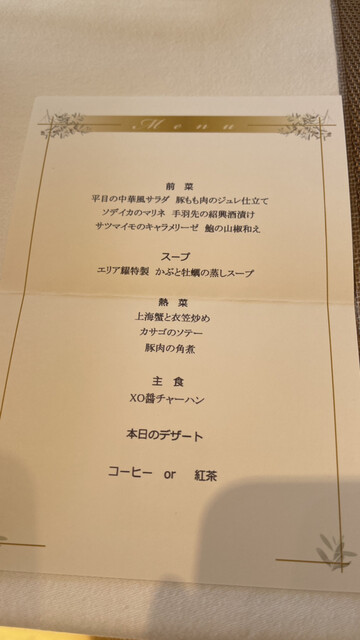 Menu
前 菜
平目の中華風サラダ 豚もも肉のジュレ仕立て
ソデイカのマリネ 手羽先の紹興酒漬け
サツマイモのキャラメリーゼ 鮑の山椒和え
スープ
エリア耀特製 かぶと牡蠣の蒸しスープ
熱 菜
上海蟹と衣笠炒め
カサゴのソテー
豚肉の角煮
主 食
XO醤チャーハン
本日のデザート
コーヒー or 紅茶